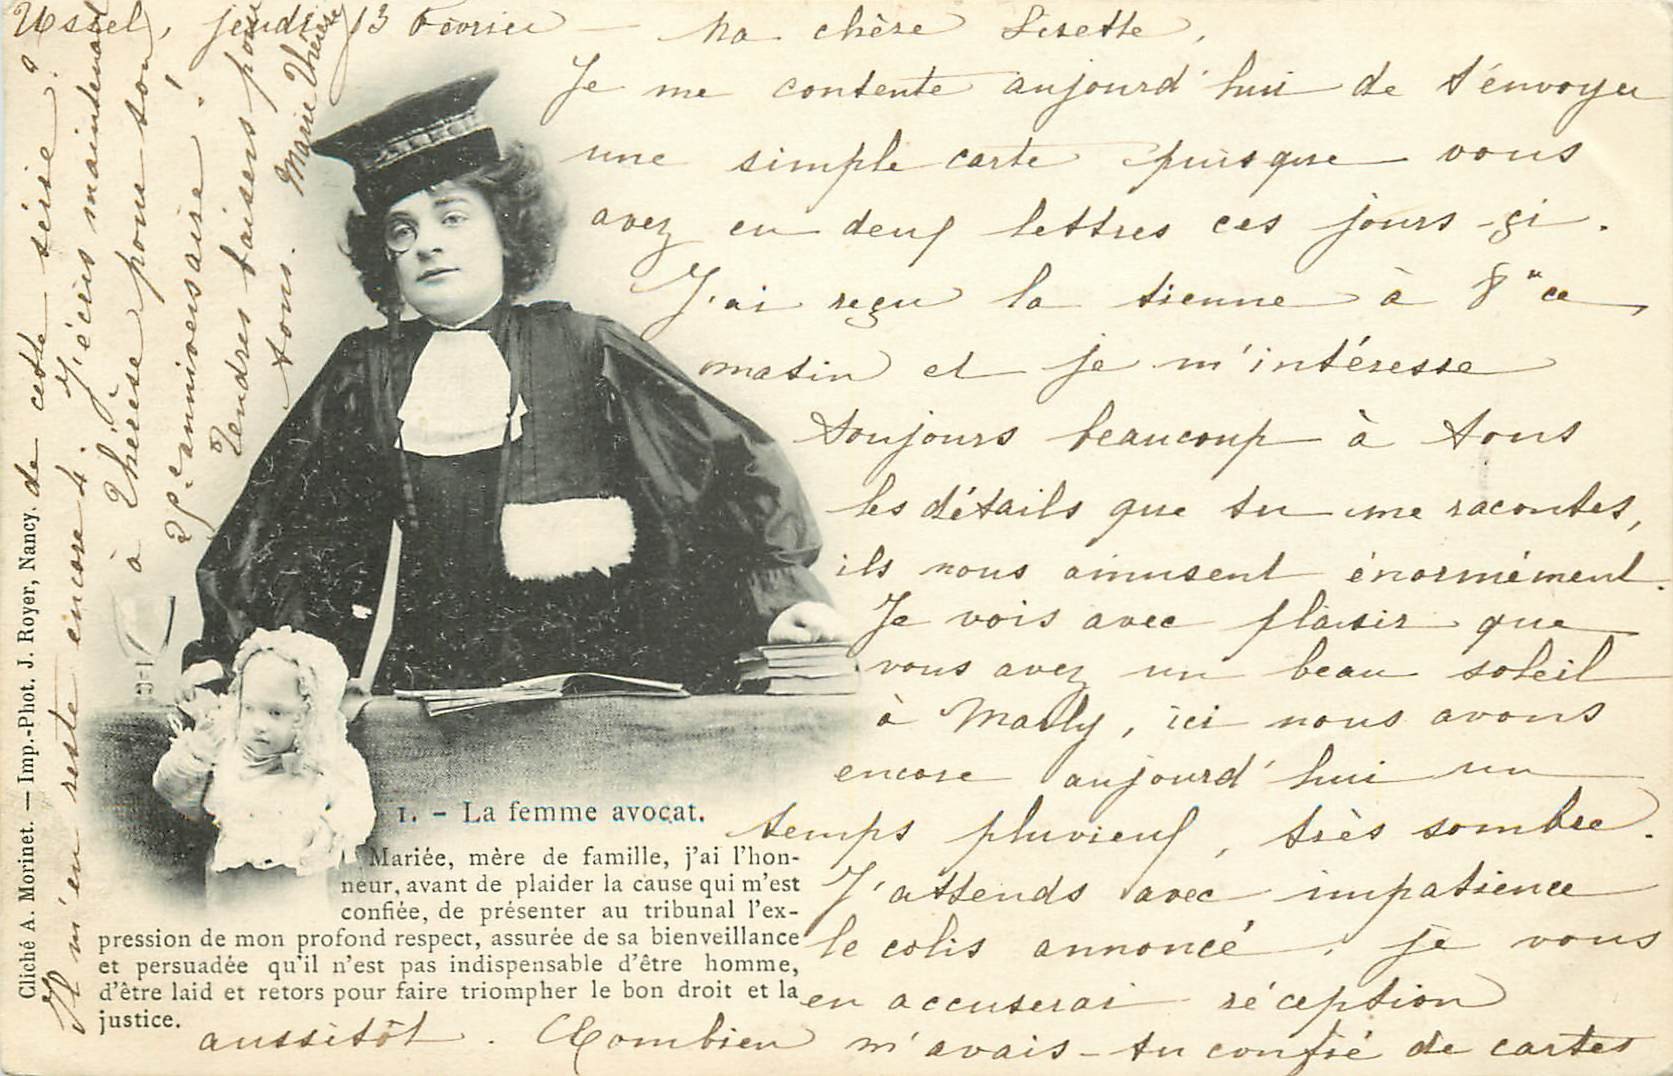 Ussel, jeudi 13 Février — Ma chère Lisette,
Je me contente aujourd'hui de t'envoyer
une simple carte puisque vous
avez eu deux lettres ces jours-çi.
J'ai reçu la tienne à 8h ce
matin et je m'intéresse
toujours beaucoup à tous
les détails que tu me racontes,
ils nous amusent énormément.
Je vois avec plaisir que
vous avez un beau soleil
à Mailly, ici nous avons
encore aujourd'hui un
temps pluvieux, très sombre.
J'attends avec impatience
le colis annoncé, je vous
en accuserai réception
aussitôt. Combien m'avais-tu confié de cartes
de cette série?
Il m'en reste encore 4. J'écris maintenant
à Thérèse pour son
25e anniversaire!
Tendres baisers pour
tous. Marie Thérèse
1. – La femme avocat.
Mariée, mère de famille, j'ai l'hon-
neur, avant de plaider la cause qui m'est
confiée, de présenter au tribunal l'ex-
pression de mon profond respect, assurée de sa bienveillance
et persuadée qu'il n'est pas indispensable d'être homme,
d'être laid et retors pour faire triompher le bon droit et la
justice.
Cliché A. Morinet. — Imp.-Phot. J. Royer, Nancy.